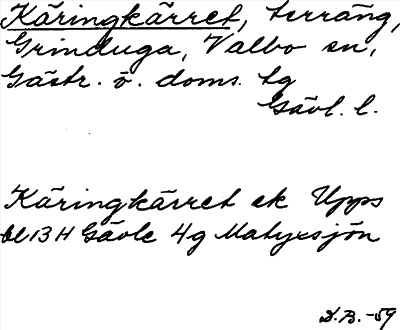 Käringkärret, terräng,
Grinduga, Valbo sn,
Gästr. ö. doms. tg
Gävl. l.
Käringkärret ek Upps
bl 13 H Gävle 4g Matyxsjön
D.B. -59